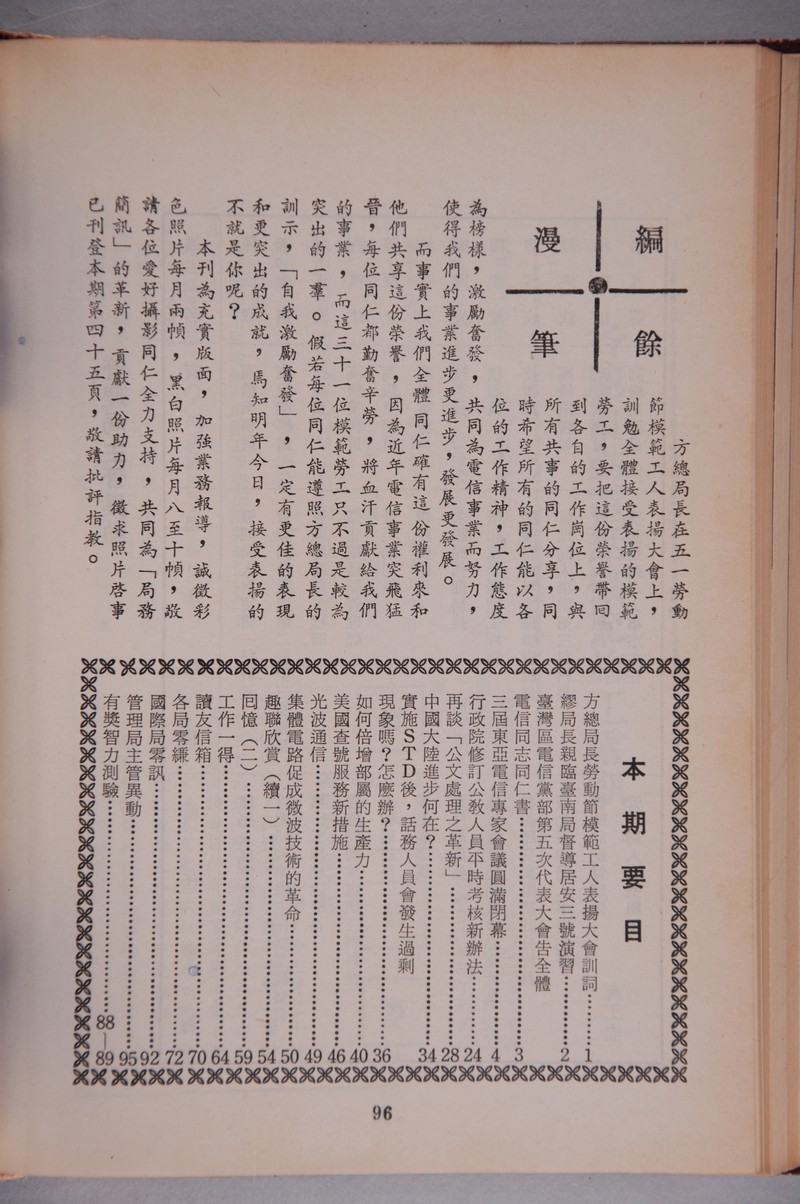 編餘
漫筆
方總局長在五一勞動
節模範工人表揚大會上，
訓勉全體接受表揚的模範
勞工，要把這份榮譽帶回
到各自的工作崗位上，與
所有共事的同仁分享，同
時希望所有的同仁能以各
位的工作精神，工作態度
為榜樣，激勵奮發，共同為電信事業而努力，
使得我們的事業進步更進步，發展更發展。
而事實上我們全體同仁確有這份權利來和
他們共享這份榮譽，因為近年電信事業突飛猛
晉，每位同仁都勤奮辛勞，將血汗貢獻給我們
的事業，而這三十一位模範勞工只不過是較為
突出的一羣。假若每位同仁能遵照方總局長的
訓示，「自我激勵奮發」，一定有更佳的表現
和更突出的成就，馬知明年今日，接受表揚的
不就是你呢？
本刊為充實版面，加強業務報導，誠徵彩
色照片每月兩幀，黑白照片每月八至十幀，敬
請各位愛好攝影同仁全力支持，共同為「局務
簡訊」的革新，貢獻一份助力，徵求照片啓事
已刊登本期第四十五頁，敬請批評指教。
本期要目
方總局長勞動節模範工人表揚大會訓詞…………1
繆局長親臨臺南局督導居安三號演習…………2
臺灣區電信黨部第五次代表大會告全體
電信同志同仁書…………3
三屆東亞電信專家會議圓滿閉幕…………4
行政院修訂公教人員平時考核新辦法…………24
再談「公文處理之革新」…………28
中國大陸進步何在？…………34
實施STD後，話務人員會發生過剩
現象嗎？怎麼辦？…………36
如何倍增部屬的生產力…………40
美國查號服務新措施…………46
光波通信…………49
集體電路促成微波技術的革命…………50
趣聯欣賞（續一）…………54
回憶（二）…………59
工作一得…………64
讀友信箱…………70
各局零縑…………72
國際局零訊…………92
管理局主管異動…………95
有獎智力測驗…………88—89
96